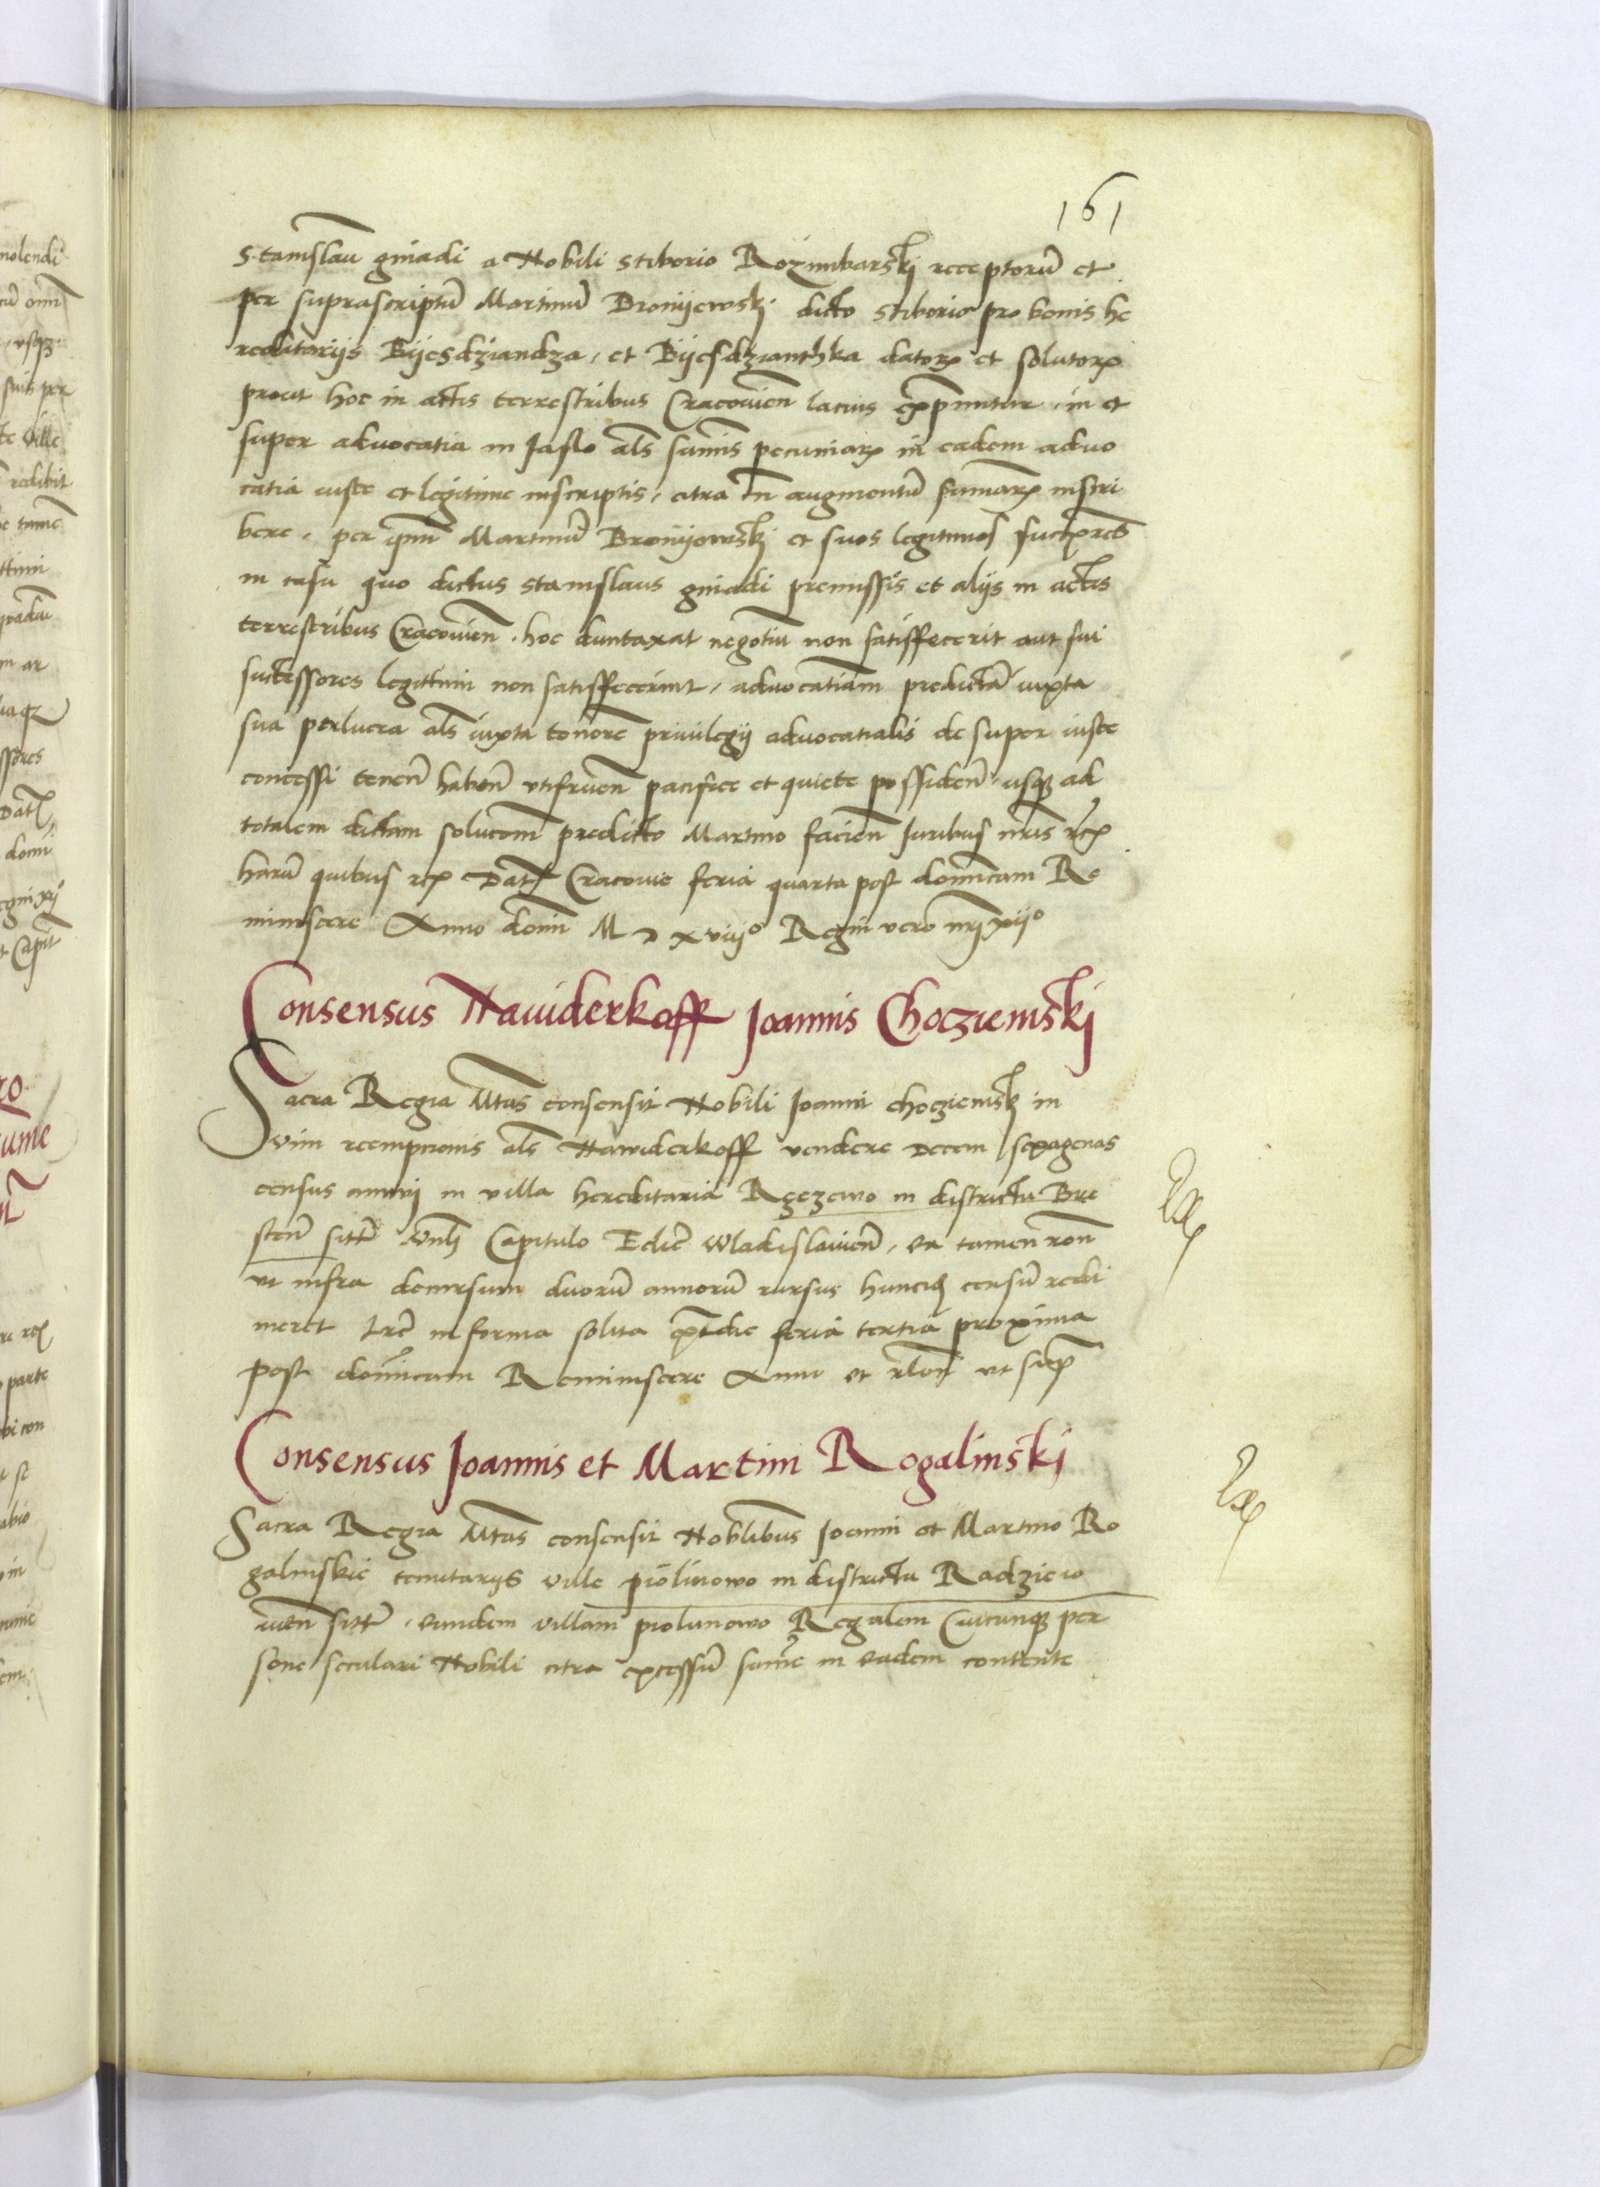 161
Stanislau gniadi a Nobili Stiborio Rozimbarski receptorũ et
per suprascriptũ Martinũ Bronijewski dicto Stiborio pro bonis he
reditarijs Bijesdziandza, et Bijesdzianthka dator et solutor
prout hoc in actis terrestribus Cracovieñ lacius exprimitur, in et
super advocatia in Jaslo als sum̃is pecuniar in eadem advo
catia iuste et legitime inscriptis, citra tñ augmentũ summar inscri
bere, per Martinũ Bronijowski et suos legitimos succores
in casu quo dictus Stanislaus gniadi premissis et alijs in actis
terrestribus Cracovieñ, hoc duntaxat negotiũ non satisffecerit aut sui
successores legittimi non satisffecerint, advocatiam predictã iuxta
sua perlucra als iuxta tenore privilegij advocatialis de super iuste
concessi teneñ habeñ utifrueñ pacifice et quiete possideñ, usq ad
totalem dictam solucom predicto Martino facieñ Juribus nris
harũ quibus Dat Cracovie feria quarta post domicam Re
miniscere Anno domi M D xviij° Regni vero nri xij°
Consensus Naviderkoff Joannis Choczienski
Sacra Regia Mtas consensit Nobili Joanni choczienski in
vim reempcionis als Nawiderkoff vendere decem sexagenas
census annui in villa hereditaria Rzezewo in districtu Bre
steñ sitt Capitulo Wladislavieñ, ea tamen roñ
ut infra decursum duorũ annorũ rursus hunc censũ redi
meret Lre in forma solita feria tertia proxima
post domicam Reminiscere Anno et ut sup
Consensus Joannis et Martini Rogalinski
Sacra Regia Mtas consensit Nobilibus Joanni et Martino Ro
galinskie tenutarijs ville piolinowo in districtu Radzieio
vieñ sitt, eandem villam piolunowo Regalem Cuicunq per
sone seculari Nobili citra excessũ sume in eadem contente